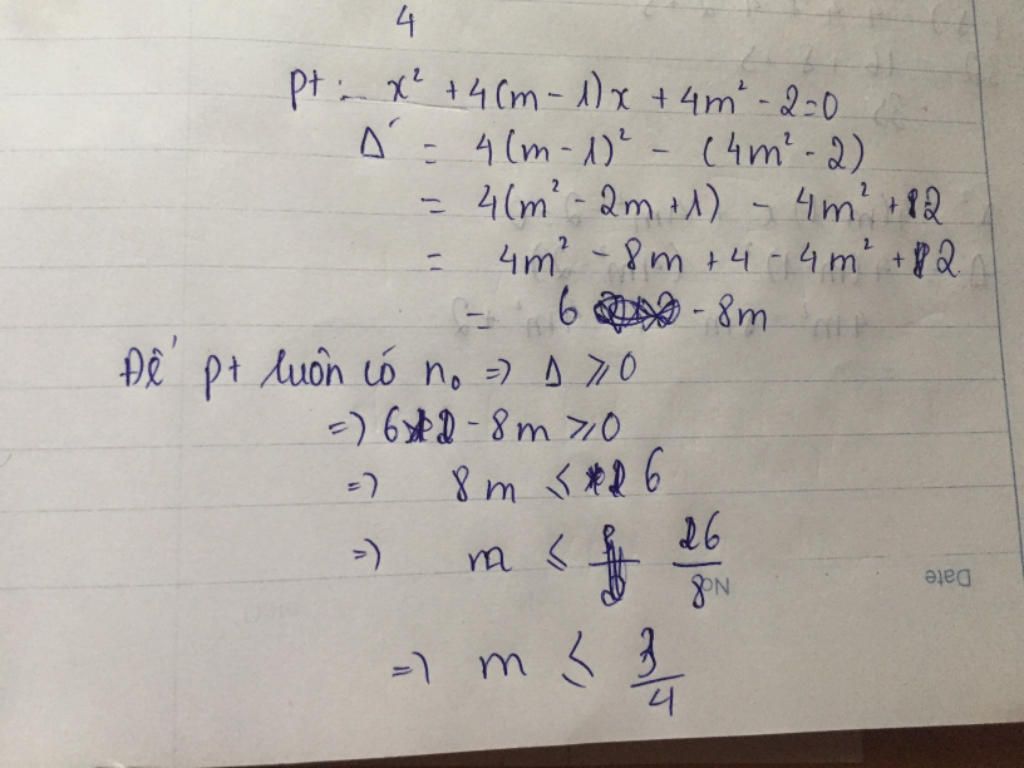 4
pt: x² + 4(m - 1)x + 4m² - 2 = 0
Δ' = 4(m - 1)² - (4m² - 2)
= 4(m² - 2m + 1) - 4m² + 2
= 4m² - 8m + 4 - 4m² + 2
= 6 - 8m
Để pt luôn có n₀ => Δ ≥ 0
=> 6 - 8m ≥ 0
=> 8m ≤ 6
=> m ≤ 6/8
No
Date
=> m ≤ 3/4